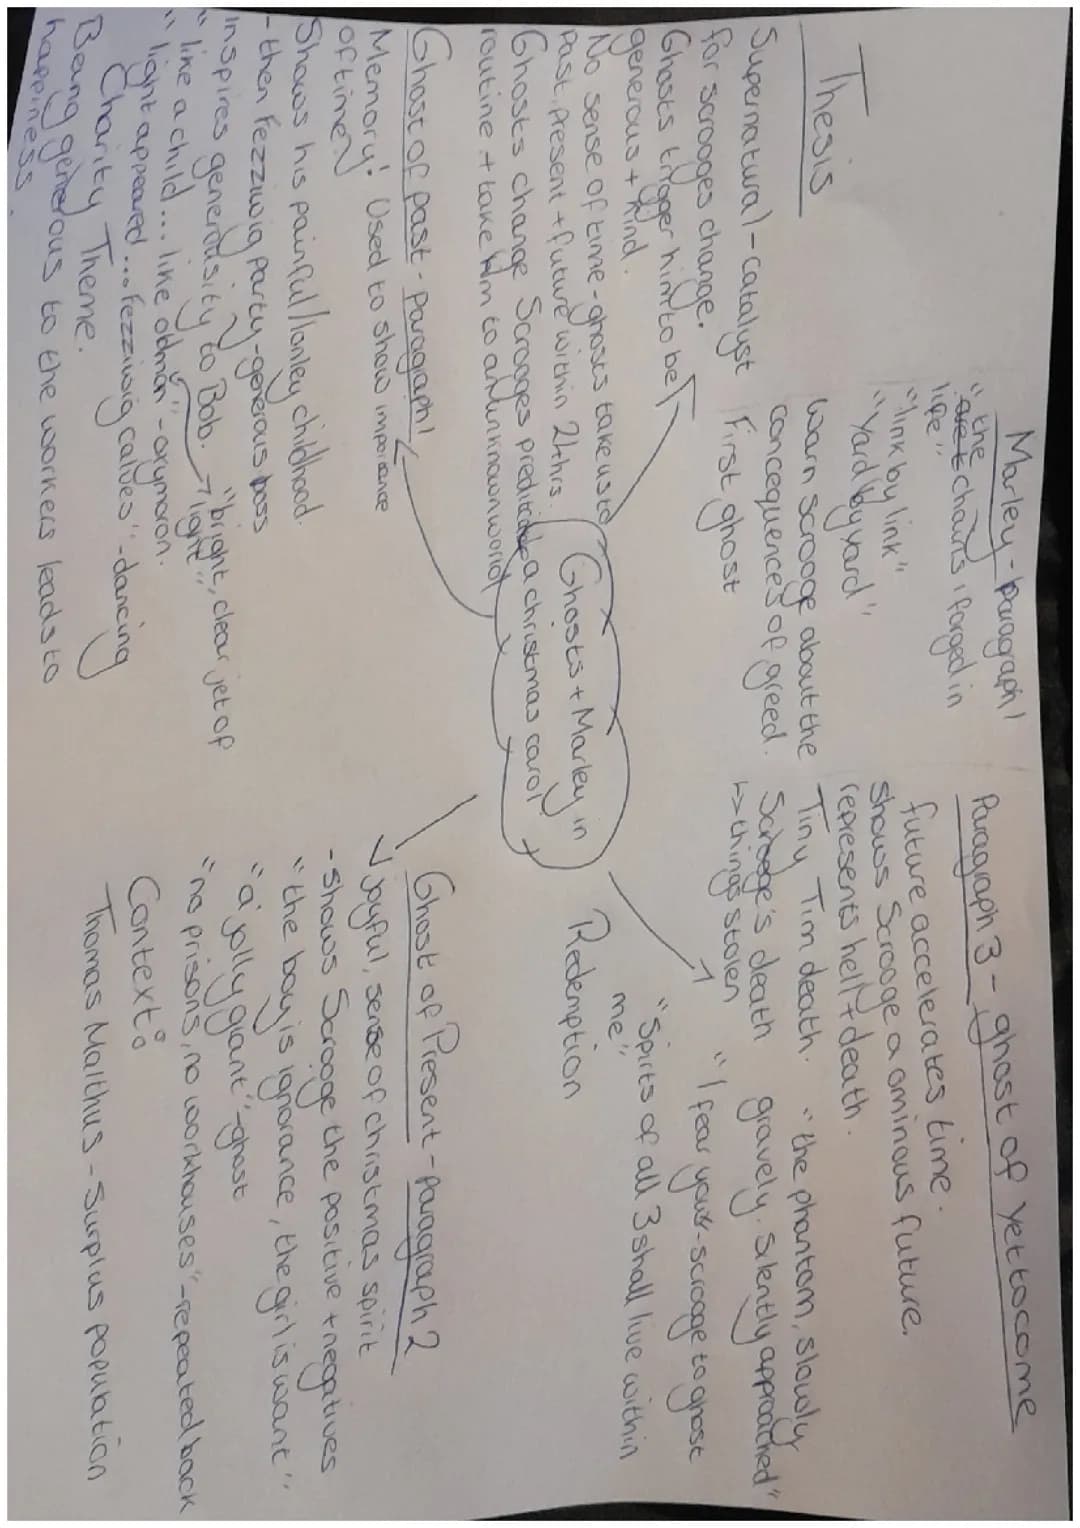 Thesis
Supernatural - catalyst
for scrooges change.
Ghosts trigger him to be
generous + kind.
No sense of time - ghosts take us to
past, present + future within 24hrs.
Ghosts change Scrooges
routine + take him to an unknown world
Marley - paragraph 1
"the chains i forged in
life"
"link by link"
"Yard by yard"
Warn scrooge about the
concequences of greed.
First ghost
Paragraph 3 - ghost of yet to come
future accelerates time.
Shows Scrooge a ominous future.
represents hell + death.
Tiny Tim death.
Scrooge's death
↳> things stolen
"the phantom, slowly
gravely. silently approached"
"I fear you - scrooge to ghost
"Spirits of all 3 shall live within
me"
Redemption
Ghosts + Marley in
a christmas carol
Ghost of past - Paragraph 1
Memory! Used to show
of time
Shows his painful/lonley childhood.
- then Fezziwig party - generous boss
inspires generousity to Bob.
"bright, clear jet of
light"
"like a child... like oldman" - oxymoron.
"light appeared... fezziwig calves" - dancing
Charity Theme.
Being generous to the workers leads to
happiness.
Ghost of Present - Paragraph 2
joyful, sense of christmas spirit
- Shows Scrooge the positive + negatives
"the boy is ignorance, the girl is want"
"a jolly giant" - ghost
"no prisons, no workhouses" - repeated back
Context:
Thomas Malthus - Surplus population